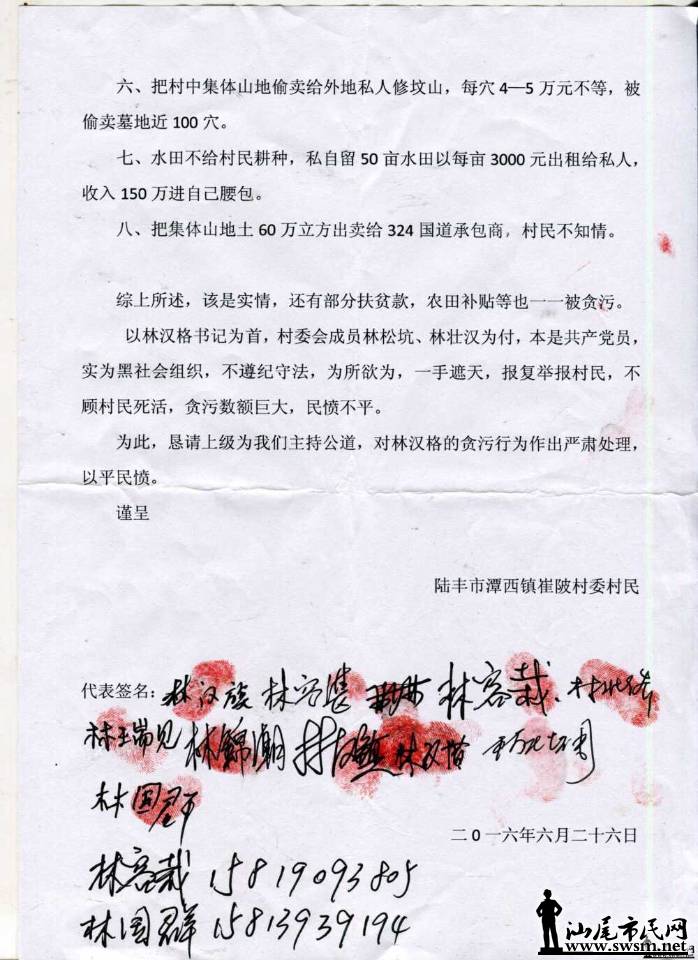 六、把村中集体山地偷卖给外地私人修坟山，每穴 4—5 万元不等，被
偷卖墓地近 100 穴。
七、水田不给村民耕种，私自留 50 亩水田以每亩 3000 元出租给私人，
收入 150 万进自己腰包。
八、把集体山地土 60 万立方出卖给 324 国道承包商，村民不知情。
综上所述，该是实情，还有部分扶贫款，农田补贴等也一一被贪污。
以林汉格书记为首，村委会成员林松坑、林壮汉为付，本是共产党员，
实为黑社会组织，不遵纪守法，为所欲为，一手遮天，报复举报村民，不
顾村民死活，贪污数额巨大，民愤不平。
为此，恳请上级为我们主持公道，对林汉格的贪污行为作出严肃处理，
以平民愤。
谨呈
陆丰市潭西镇崔陂村委村民
代表签名：林汉族 林容哉
林锦潮
林国群
二0一六年六月二十六日
林容哉 15819093805
林国群 15813939194
汕尾市民网
www.swsm.net